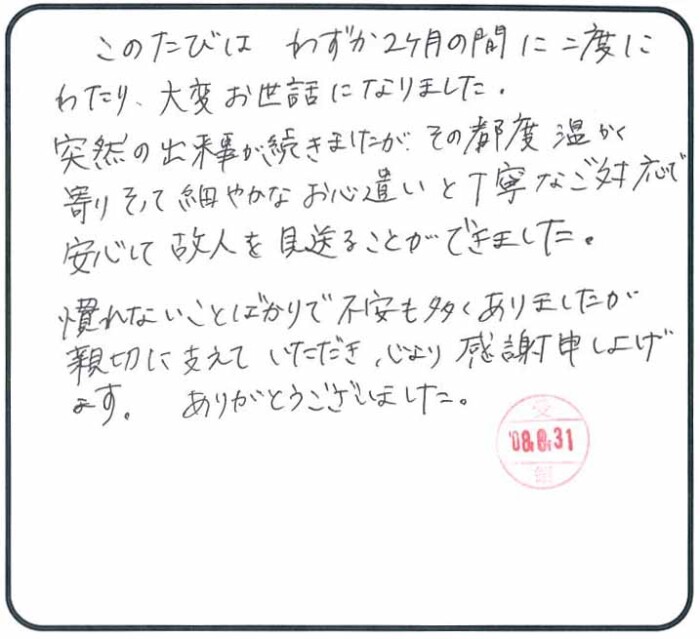 このたびは わずか2ケ月の間に二度に
わたり、大変お世話になりました。
突然の出来事が続きましたが、その都度温かく
寄りそって細やかなお心遣いと丁寧なご対応で
安心して故人を見送ることができました。
慣れないことばかりで不安も多くありましたが
親切に支えていただき、心より感謝申し上げ
ます。 ありがとうございました。
受
'08.8.31